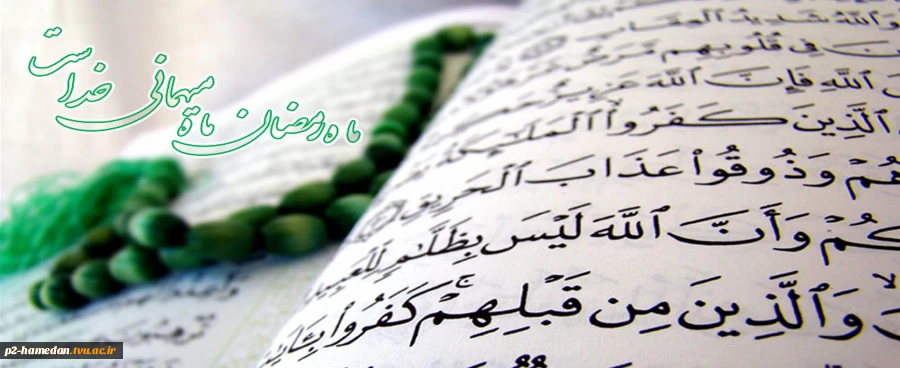 ماه رمضان ماه میهمانی خداست
وَٱللَّهُ شَدِيدُ ٱلْعِقَابِ
فِى قُلُوبِهِم مَّرَضٌ
ٱللَّهِ فَإِنَّ ٱللَّهَ عَزِيزٌ
ٱلَّذِينَ كَفَرُوا۟ ٱلْمَلَٰٓئِكَةُ
هُمْ وَذُوقُوا۟ عَذَابَ ٱلْحَرِيقِ
كُمْ وَأَنَّ ٱللَّهَ لَيْسَ بِظَلَّٰمٍ لِّلْعَبِيدِ
وَٱلَّذِينَ مِن قَبْلِهِمْ ۚ كَفَرُوا۟
p2-hamedan.tvu.ac.ir